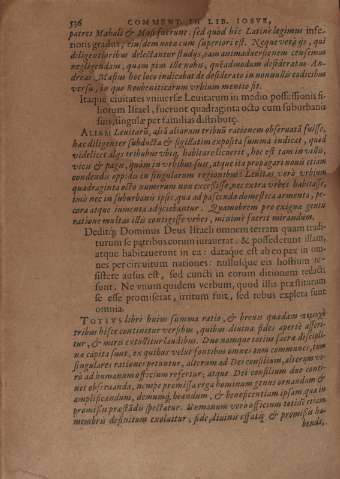 536 COMMENT. IN LIB. IOSVE,
patres Mahali & Mosi fuerunt, sed quod hic Latinè legimus infe-
rioris gradus, eiusdem nota cum superiori est. Neque verò ijs, qui
diligentioribus delectantur studijs, tam animaduersionem censemus
negligendam, quam piam ille nobis, quemadmodum desideratus An-
dreas Masius hoc loco indicabat de desiderato in nonnullis codicibus
versu, in quo Reubeniticarum vrbium mentio fit.
Itaque ciuitates vniuersæ Leuitarum in medio possessionis fi-
liorum Israel, fuerunt quadraginta octo cum suburbanis
suis, singulæ per familias distributę.
ALIAM Leuitarū, aliā aliarum tribuū rationem obseruatā fuisse,
hæc diligenter subducta & sigillatim exposita summa indicat, quod
videlicet alijs tribubus vbiq, habitare licuerit, hoc est tam in villis,
vicis & pagis, quàm in vrbibus suis, atque ita propagari nouis etiam
condendis oppidis in singularum regionibus: Leuitas verò vrbium
quadraginta octo numerum non excessisse, nec extra vrbes habitasse,
imò nec in suburbanis ipsis, quæ ad pascenda domestica armenta, pe-
cora atque iumenta adiacebantur. Quamobrem pro exigua gentis
ratione multas illis contigisse vrbes, minimè fuerit mirandum.
Deditq; Dominus Deus Israeli omnem terram quam tradi-
turum se patribus eorum iurauerat: & possederunt illam,
atque habitauerunt in ea: dataque est ab eo pax in om-
nes per circuitum nationes: nullusque eis hostium re-
sistere ausus est, sed cuncti in eorum ditionem redacti
sunt. Ne vnum quidem verbum, quod illis præstiturum
se esse promiserat, irritum fuit, sed rebus expleta sunt
omnia.
TOTIVS libri huius summa ratio, & breuis quædam
tribus hisce continetur versibus, quibus diuina fides apertè asseri-
tur, & miris extollitur laudibus. Duo namque totius sacræ discipli-
næ capita sunt, ex quibus velut fontibus omnes tum communes, tum
singulares rationes petuntur, alterum ad Dei consilium, alterum ve-
rò ad humanum officium refertur; atque Dei consilium duo conti-
net obseruanda, nempe promissa erga hominum genus ornandum &
amplificandum, demumq́; beandum, & beneficentiam ipsam quæ in
promissis præstādis spectatur. Humanum vero officium totidē etiam
membris definitum exoluitur, fide, diuinis effatis, & promissis ha-
benda,